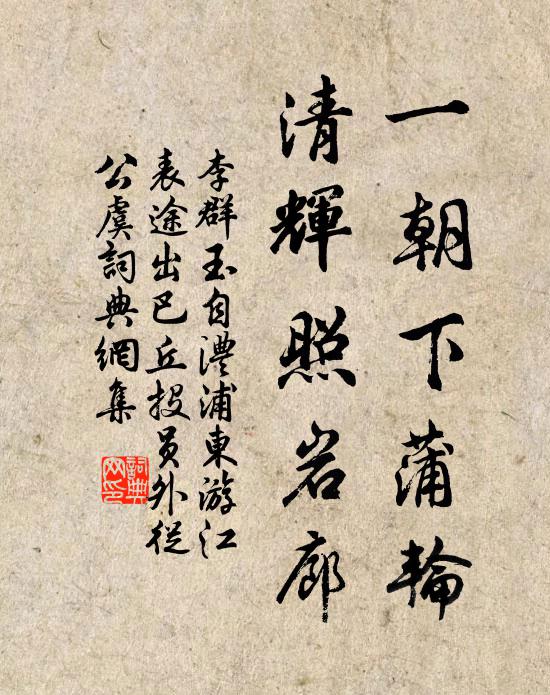 一朝下蒲輪
清輝照岩廊
李群玉自澧浦東游江
表途出巴丘投員外從
公虞詞典網集
詞典
网印